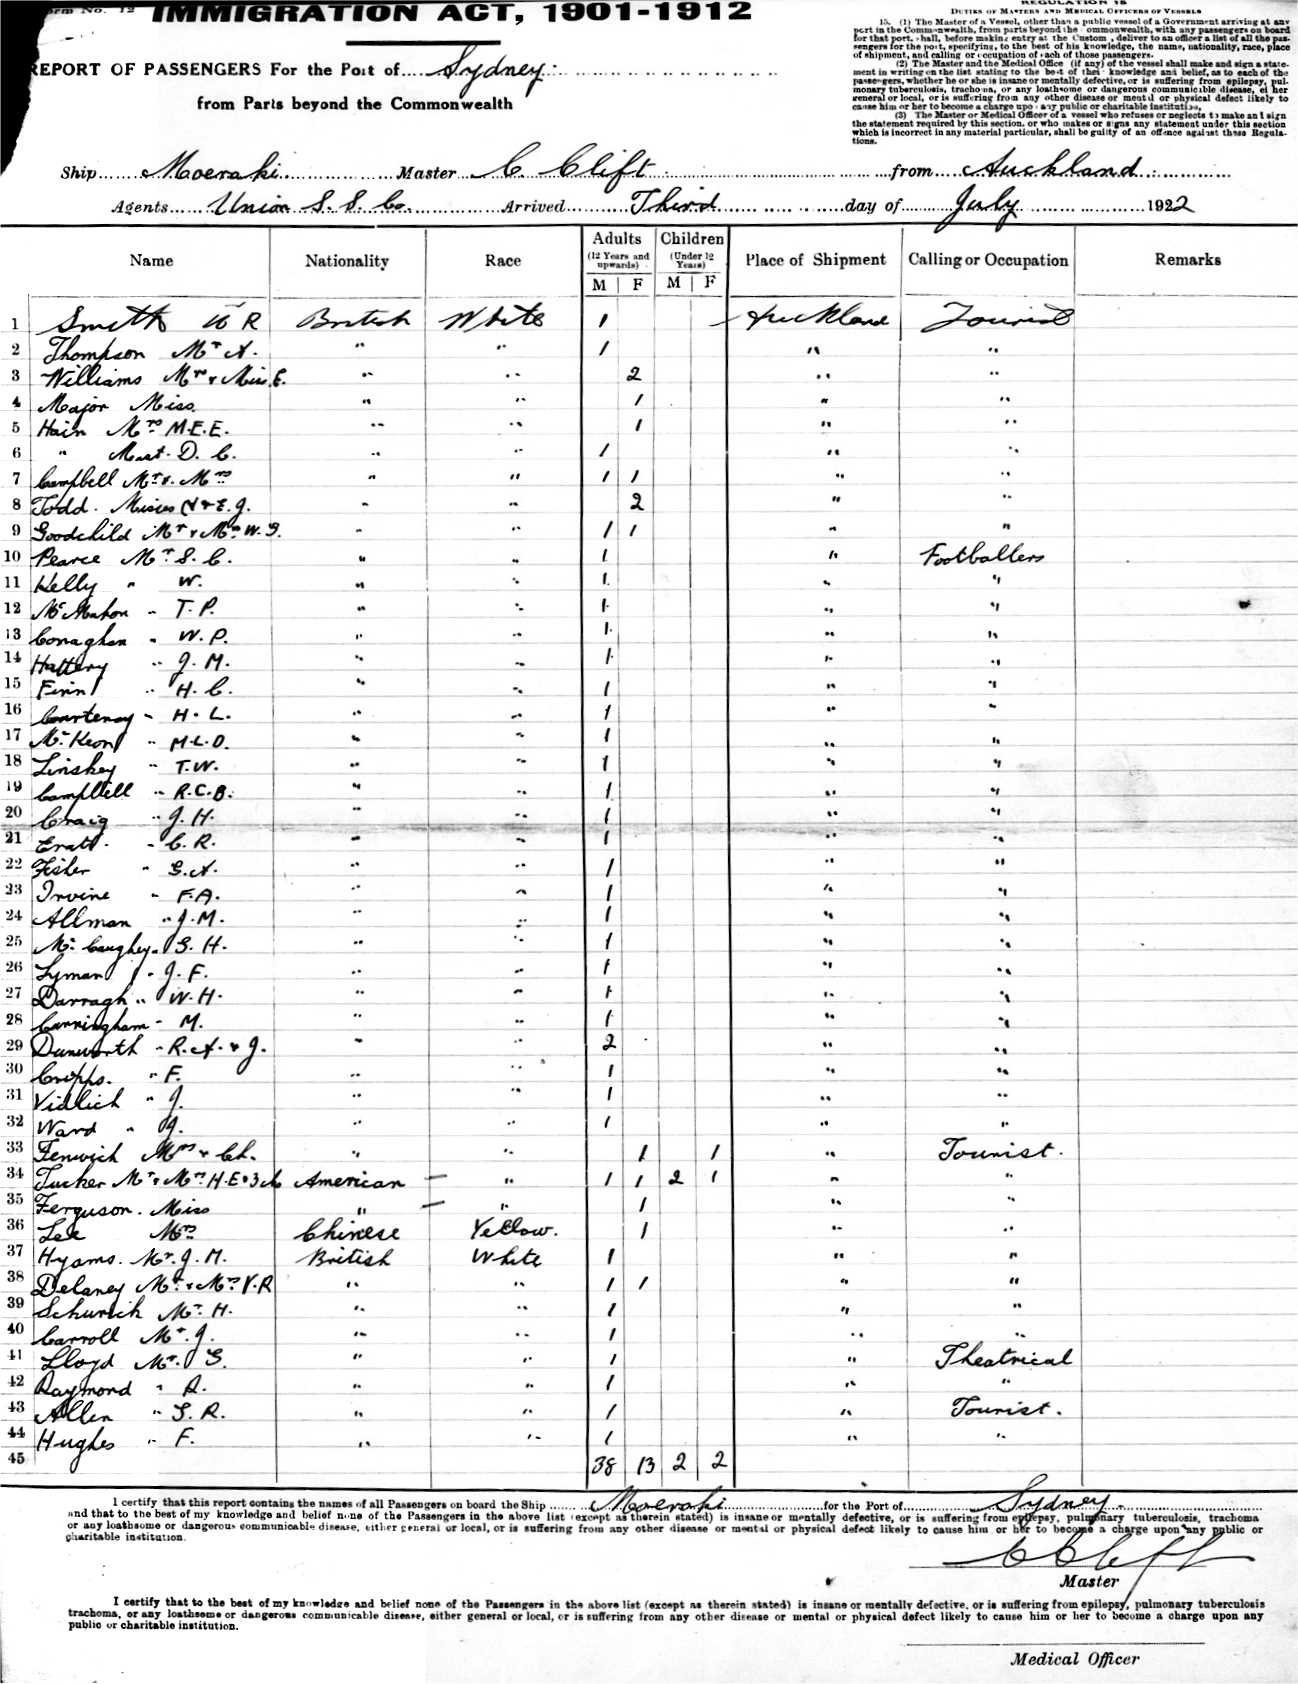 Form No. 12
IMMIGRATION ACT, 1901-1912
REGULATION 15
DUTIES OF MASTERS AND MEDICAL OFFICERS OF VESSELS
15. (1) The Master of a Vessel, other than a public vessel of a Government arriving at any
port in the Commonwealth, from parts beyond the Commonwealth, with any passengers on board
for that port, shall, before making entry at the Customs, deliver to an officer a list of all the pas-
sengers for the port, specifying, to the best of his knowledge, the name, nationality, race, place
of shipment, and calling or occupation of each of those passengers.
(2) The Master and the Medical Office (if any) of the vessel shall make and sign a state-
ment in writing on the list stating to the best of their knowledge and belief, as to each of the
passengers, whether he or she is insane or mentally defective, or is suffering from epilepsy, pul-
monary tuberculosis, trachoma, or any loathsome or dangerous communicable disease, either
general or local, or is suffering from any other disease or mental or physical defect likely to
cause him or her to become a charge upon any public or charitable institution.
(3) The Master or Medical Officer of a vessel who refuses or neglects to make and sign
the statement required by this section, or who makes or signs any statement under this section
which is incorrect in any material particular, shall be guilty of an offence against these Regula-
tions.
REPORT OF PASSENGERS For the Port of Sydney
from Parts beyond the Commonwealth
Ship Moeraki Master C. Clift from Auckland
Agents Union S. S. Co. Arrived Third day of July 1922
Name Nationality Race Adults (12 Years and upwards) Children (Under 12 Years) Place of Shipment Calling or Occupation Remarks
M F M F
1 Smith W R British White 1 Auckland Tourist
2 Thompson Mr A. " " 1 " "
3 Williams Mrs & Miss E. " " 2 " "
4 Major Miss " " 1 " "
5 Hain Mrs M.E.E. " " 1 " "
6 " Mast. D. C. " " 1 " "
7 Campbell Mr & Mrs " " 1 1 " "
8 Todd. Misses & E. J. " " 2 " "
9 Goodchild Mr & Mrs W. G. " " 1 1 " "
10 Pearce Mr S. C. " " 1 " Footballers
11 Kelly " W. " " 1 " "
12 McMahon " T. P. " " 1 " "
13 Conaghan " W. P. " " 1 " "
14 Hattery " J. M. " " 1 " "
15 Finn " H. C. " " 1 " "
16 Courtenay " H. L. " " 1 " "
17 McKeon " M.L.O. " " 1 " "
18 Linskey " T.W. " " 1 " "
19 Campbell " R.C.B. " " 1 " "
20 Craig " J. H. " " 1 " "
21 Eratt " C. R. " " 1 " "
22 Fisher " G. A. " " 1 " "
23 Irvine " F.A. " " 1 " "
24 Allman " J. M. " " 1 " "
25 McCaughey " G. H. " " 1 " "
26 Lyman " J. F. " " 1 " "
27 Darragh " W. H. " " 1 " "
28 Cunningham " M. " " 1 " "
29 Dunworth " R. A. & J. " " 2 " "
30 Cripps. " F. " " 1 " "
31 Vidlich " J. " " 1 " "
32 Ward " J. " " 1 " "
33 Fenwick Mrs & Ch. " " 1 1 " Tourist.
34 Tucker Mr & Mrs H.E & 3 ch American " 1 1 2 1 " "
35 Ferguson. Miss " " 1 " "
36 Lee Mrs Chinese Yellow. 1 " "
37 Hyams. Mr. J. M. British White 1 " "
38 Delaney Mr & Mrs V. R " " 1 1 " "
39 Schurich Mr. H. " " 1 " "
40 Carroll Mr. J. " " 1 " "
41 Lloyd Mr. G. " " 1 " Theatrical
42 Raymond " R. " " 1 " "
43 Allen " G. R. " " 1 " Tourist.
44 Hughes " F. " " 1 " "
45 38 13 2 2
I certify that this report contains the names of all Passengers on board the Ship Moeraki for the Port of Sydney.
and that to the best of my knowledge and belief none of the Passengers in the above list (except as therein stated) is insane or mentally defective, or is suffering from epilepsy, pulmonary tuberculosis, trachoma
or any loathsome or dangerous communicable disease, either general or local, or is suffering from any other disease or mental or physical defect likely to cause him or her to become a charge upon any public or
charitable institution.
C Clift
Master
I certify that to the best of my knowledge and belief none of the Passengers in the above list (except as therein stated) is insane or mentally defective, or is suffering from epilepsy, pulmonary tuberculosis
trachoma, or any loathsome or dangerous communicable disease, either general or local, or is suffering from any other disease or mental or physical defect likely to cause him or her to become a charge upon any
public or charitable institution.
Medical Officer